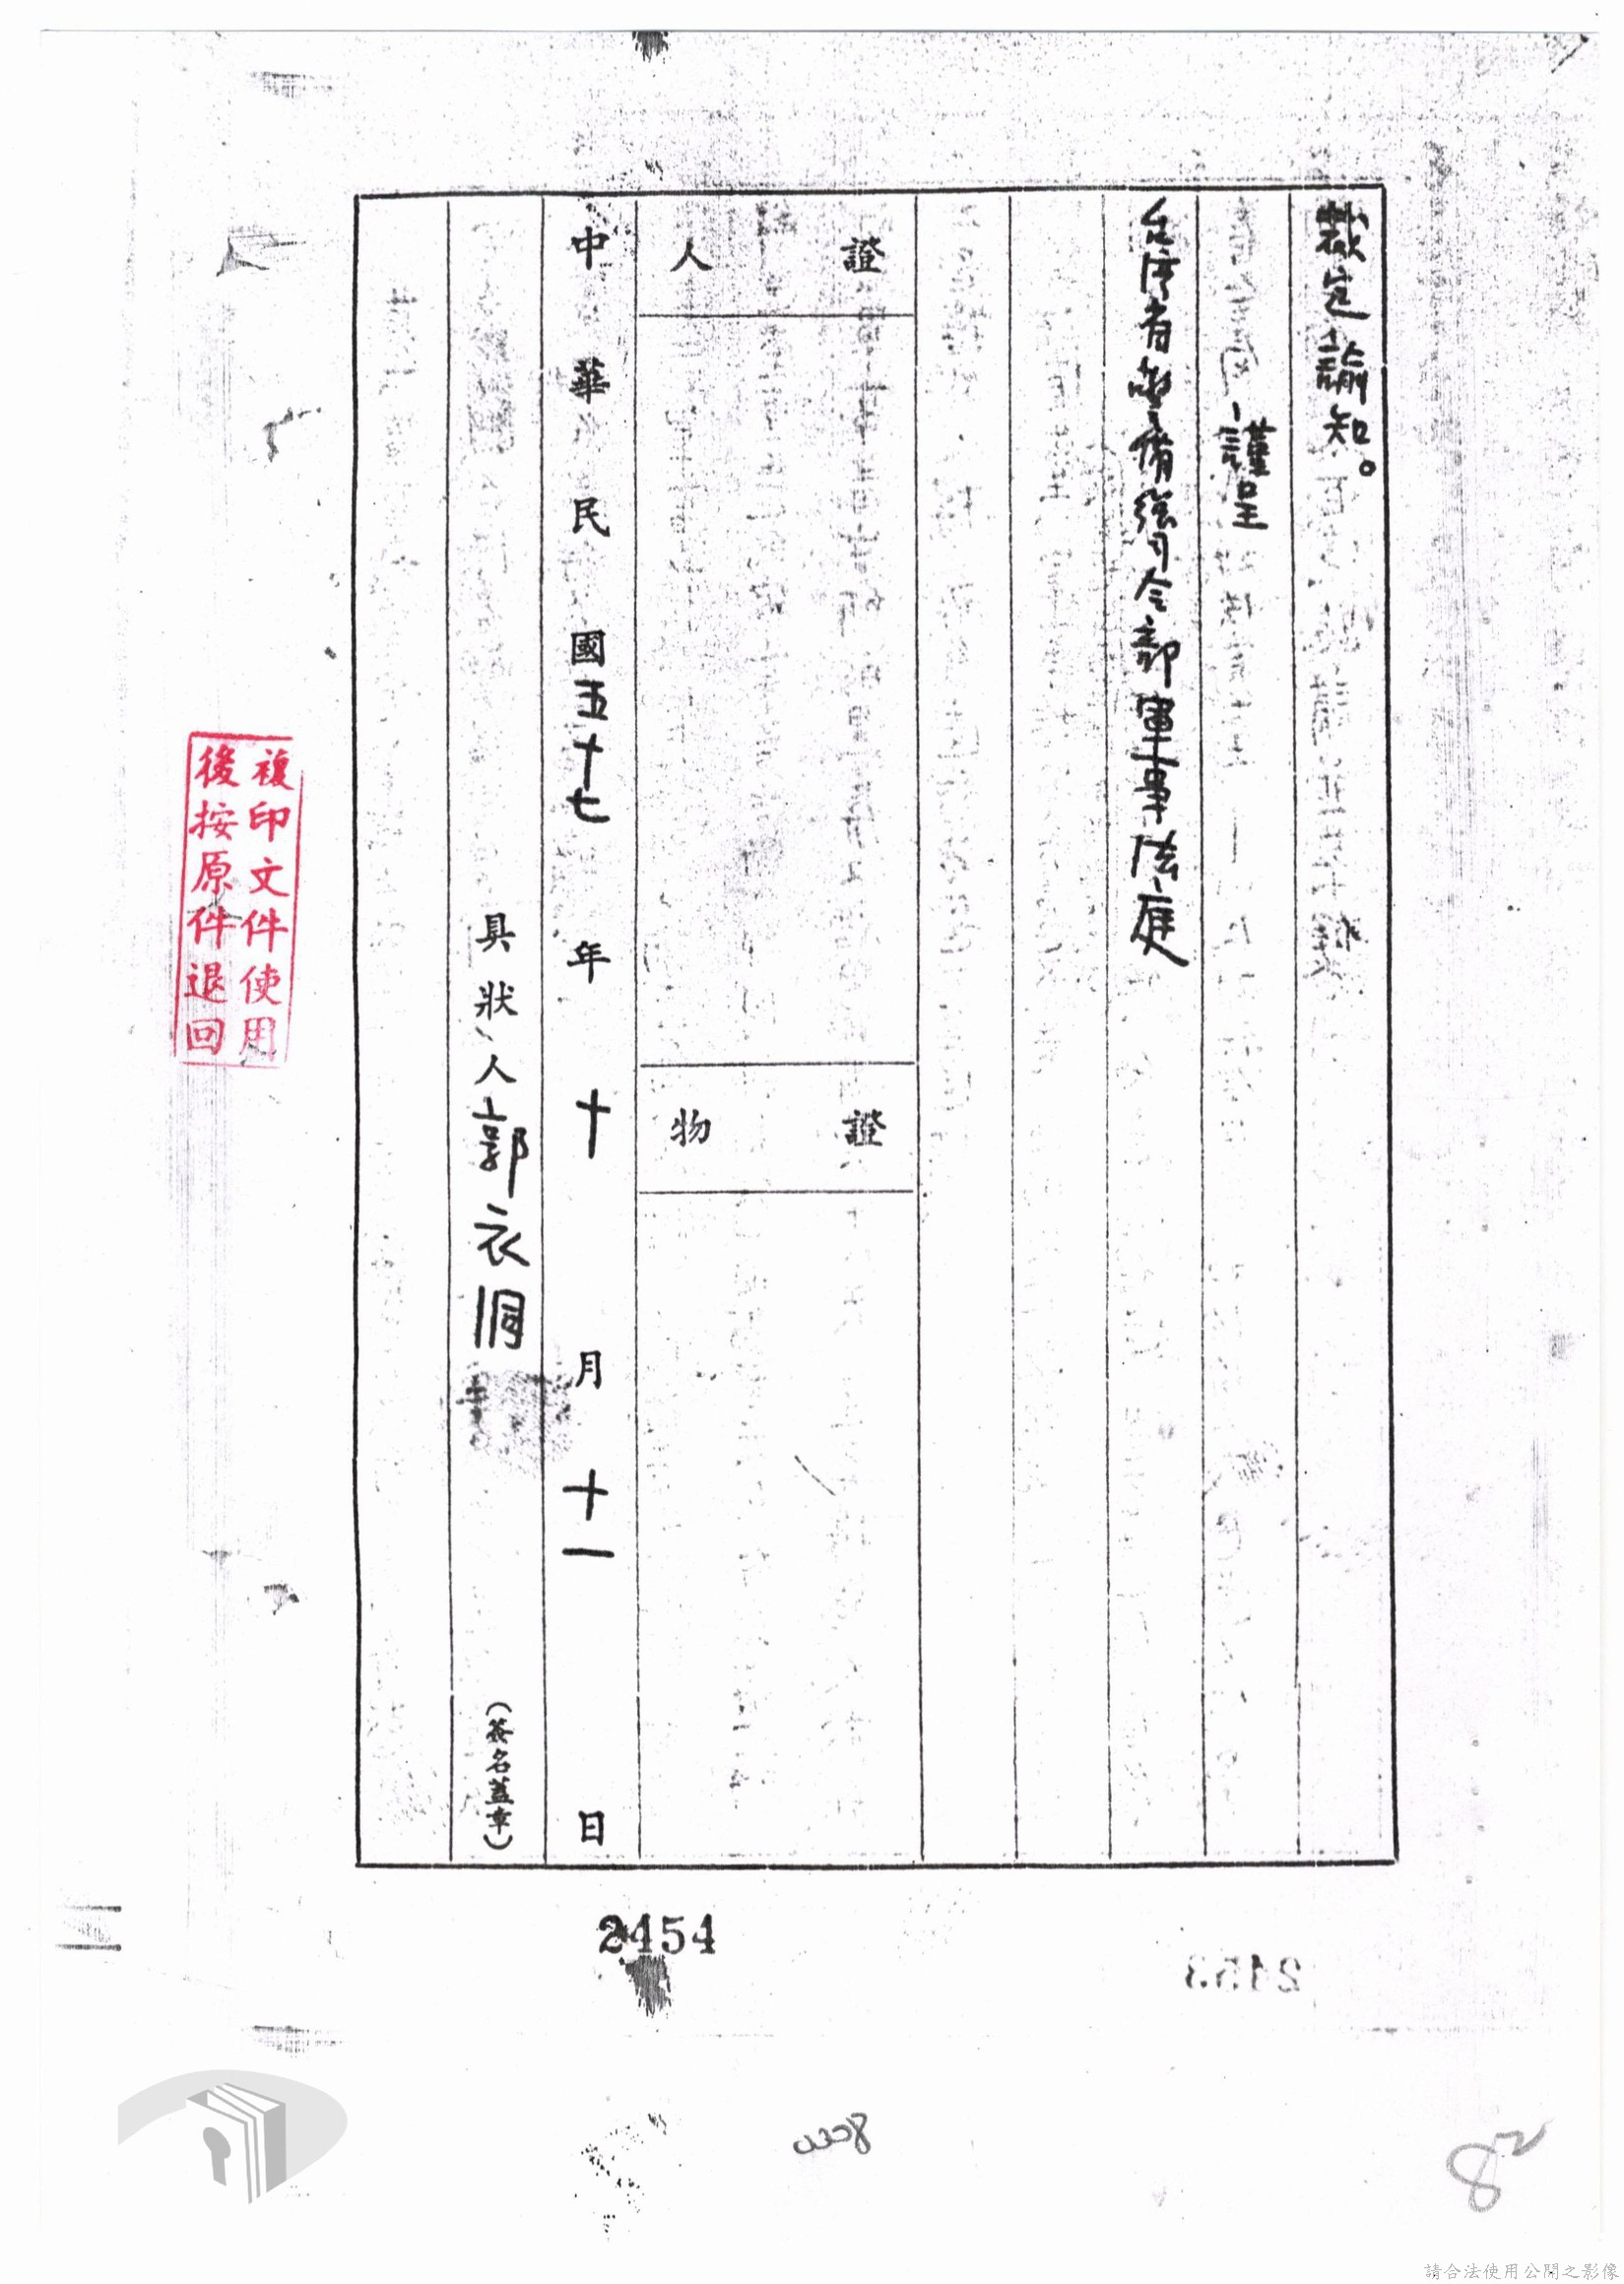 裁定諭知。
謹呈
台湾省警備總司令部軍事法庭
證人
證物
中華民國五十七年十月十一日
具狀人郭衣洞
（簽名蓋章）
複印文件使用
後按原件退回
2454
2453
8
請合法使用公開之影像